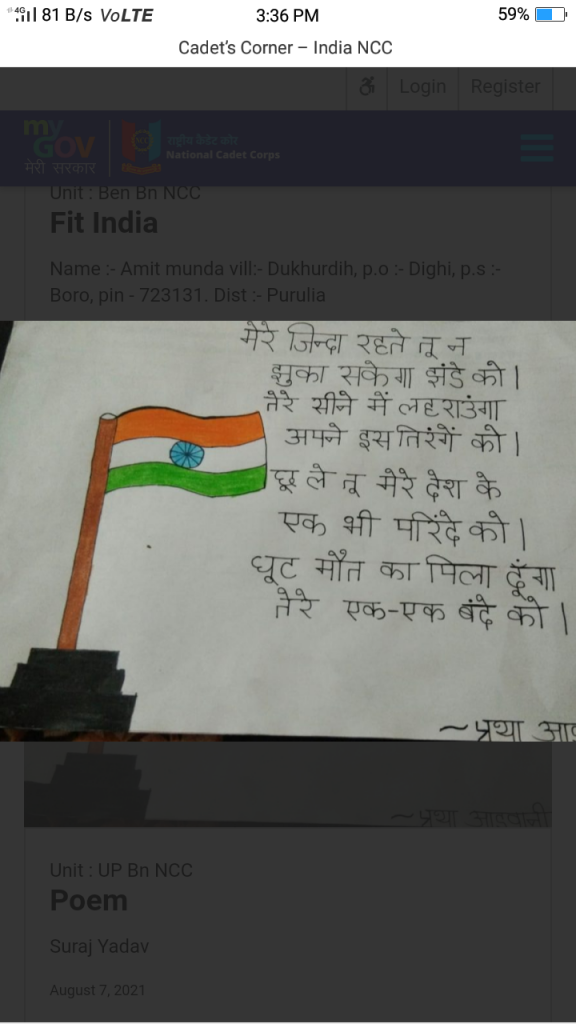 4G 81 B/s VoLTE 3:36 PM 59%
Cadet's Corner – India NCC
Login Register
my
GOV
मेरी सरकार
राष्ट्रीय कैडेट कोर
National Cadet Corps
Unit : Ben Bn NCC
Fit India
Name :- Amit munda vill:- Dukhurdih, p.o :- Dighi, p.s :-
Boro, pin - 723131. Dist :- Purulia
मेरे जिन्दा रहते तू न
झुका सकेगा झंडे को।
तेरे सीने में लहराउंगा
अपने इस तिरंगें को।
छू ले तू मेरे देश के
एक भी परिंदे को।
घूट मौत का पिला दूँगा
तेरे एक-एक बंदे को।
~ प्रथा आड
~ प्रथा आडवानी
Unit : UP Bn NCC
Poem
Suraj Yadav
August 7, 2021